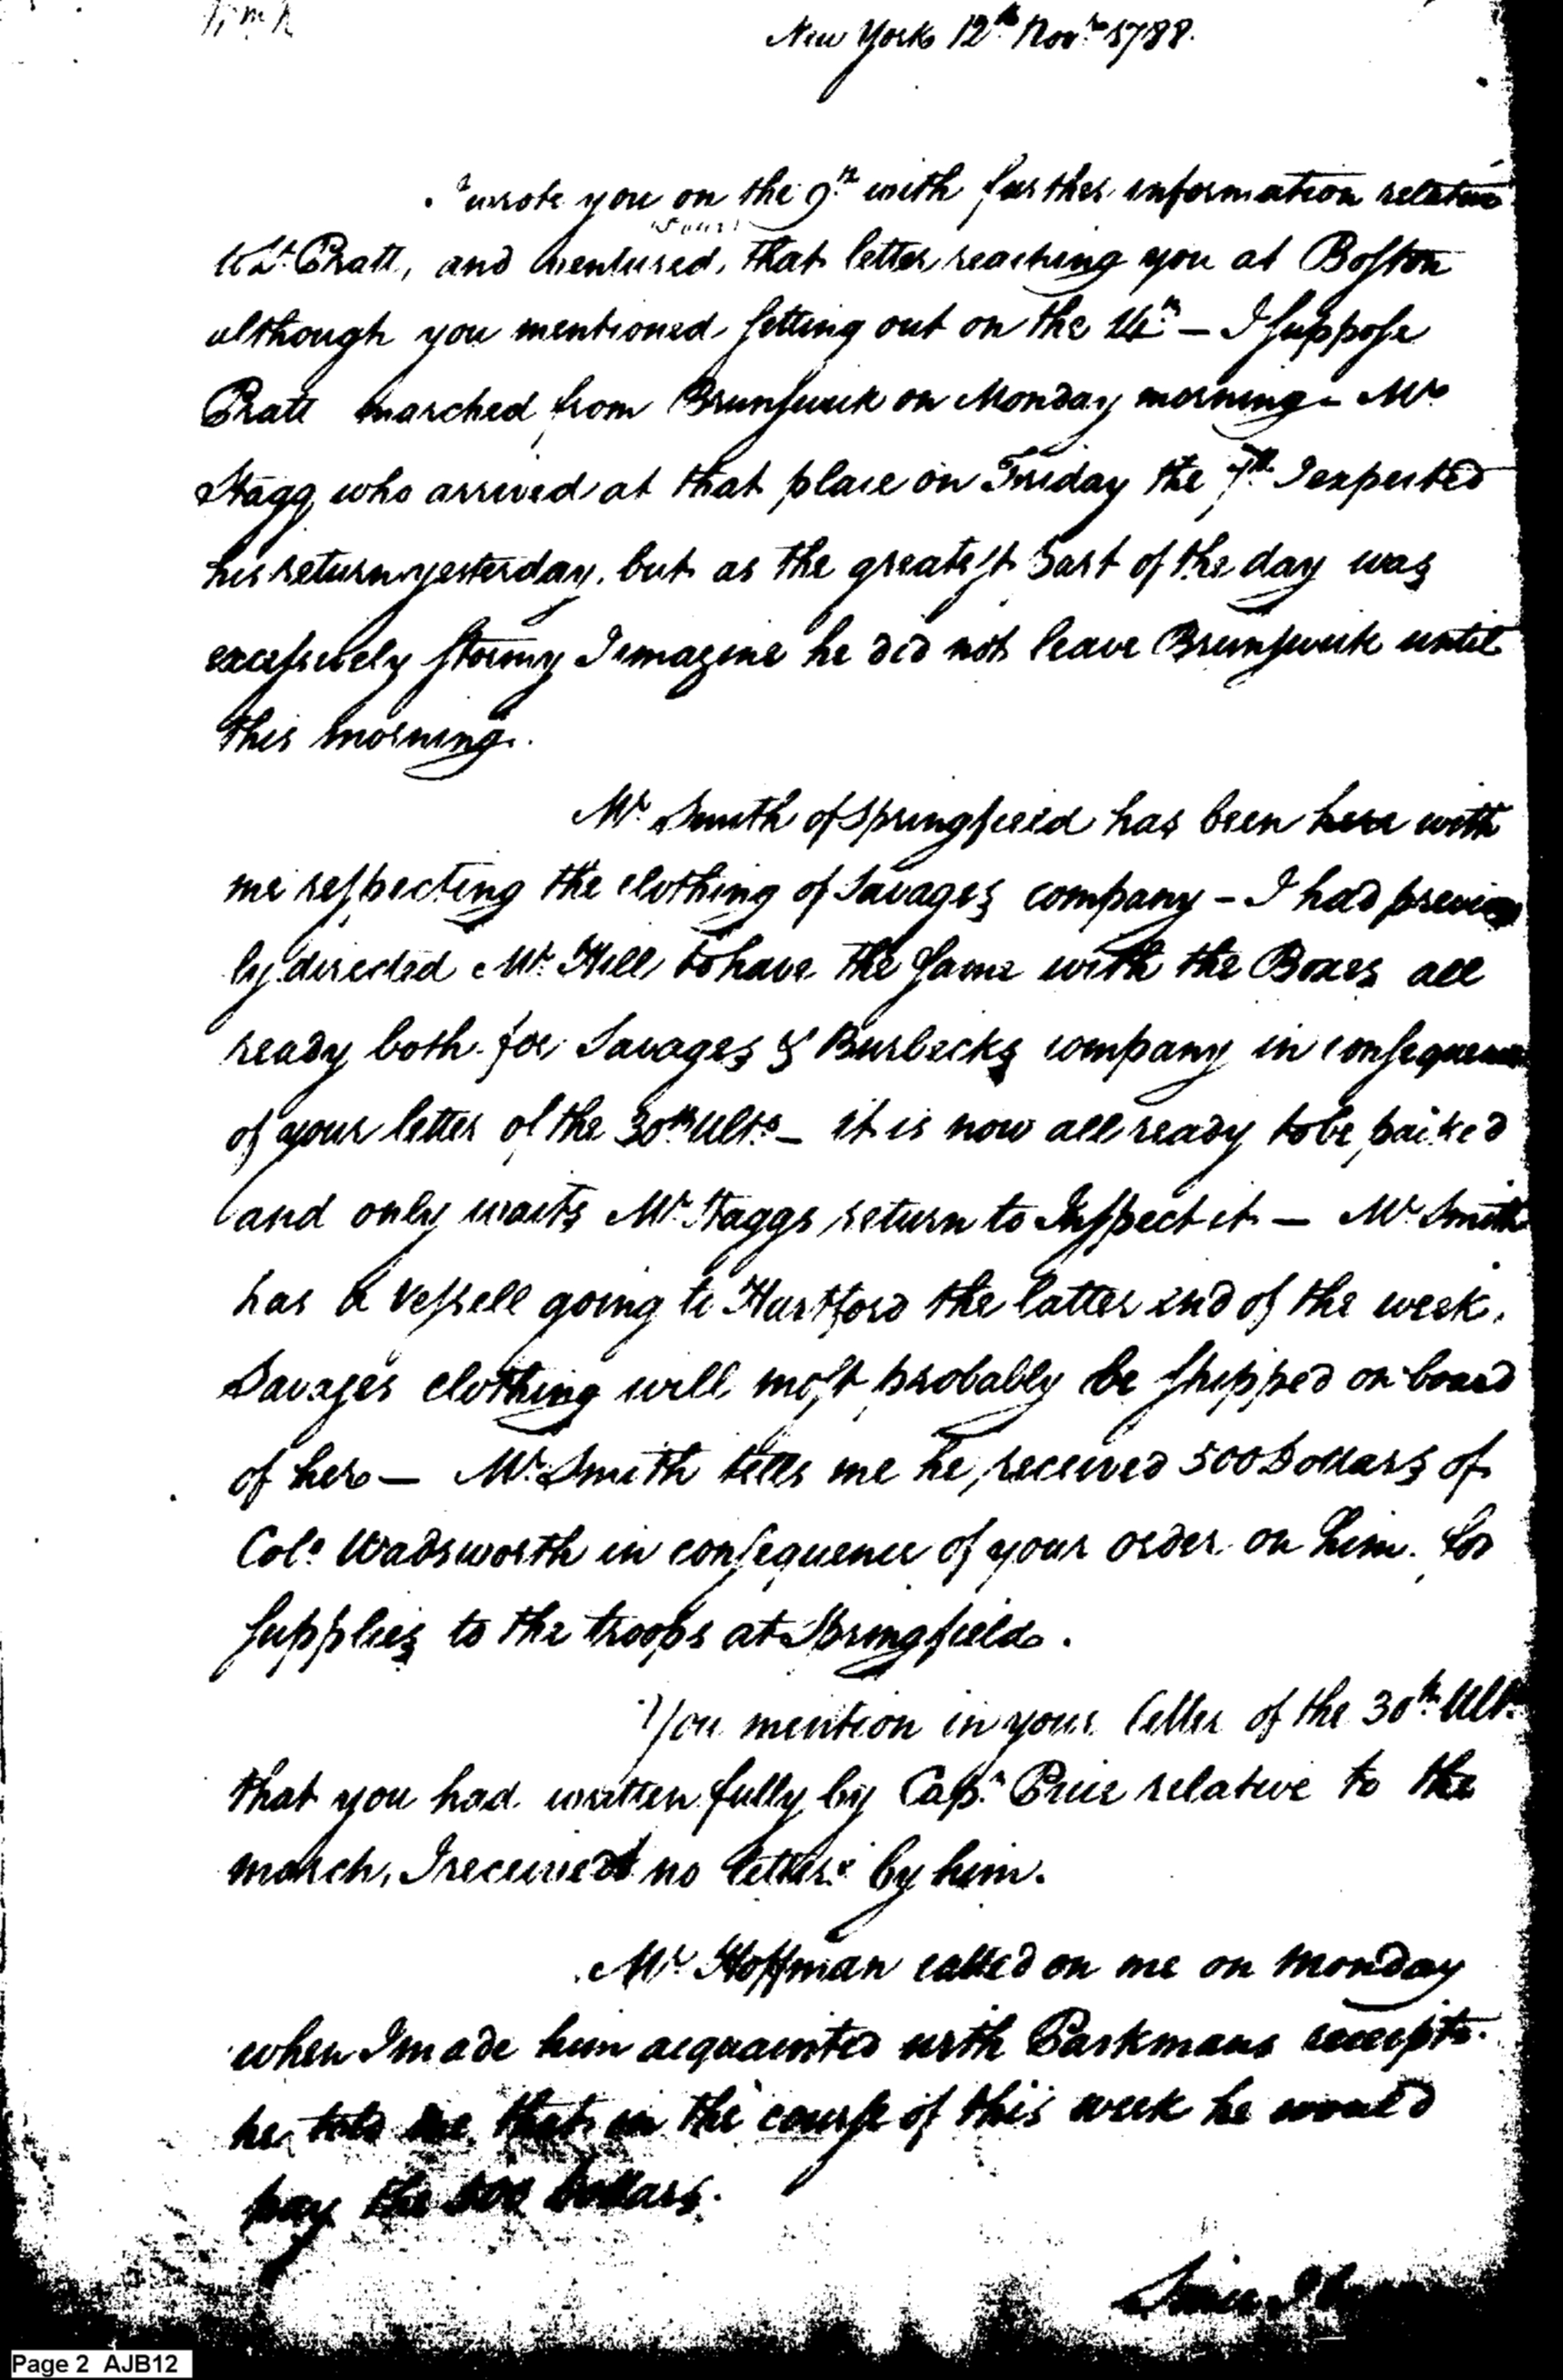 New York 12th Novr 1788.
I wrote you on the 9th with further information relative
to Lt. Pratt, and ventured, that letter reaching you at Boston
although you mentioned setting out on the 14th — I suppose
Pratt marched from Brunswick on Monday morning — Mr
Stagg who arrived at that place on Friday the 7th I expected
his return yesterday, but as the greatest part of the day was
excessively stormy I imagine he did not leave Brunswick until
this morning.
Mr Smith of Springfield has been here with
me respecting the clothing of Savages company — I had previous
ly directed Mr. Hill to have the same with the Boxes all
ready both for Savages & Burbecks company in consequence
of your letter of the 30th Ulto — it is now all ready to be packed
and only waits Mr Staggs return to Inspect it — Mr Smith
has a vessell going to Hartford the latter end of the week,
Savages clothing will most probably be shipped on board
of her — Mr. Smith tells me he received 500 Dollars of
Colo Wadsworth in consequence of your order on him for
supplies to the troops at Springfield.
You mention in your letter of the 30th Ulto
that you had written fully by Capn Price relative to the
march, I received no letter by him.
Mr Hoffman called on me on Monday
when I made him acquainted with Parkmans receipt.
he told me that in the course of this week he would
pay the 500 Dollars.
Since I
Page 2 AJB12